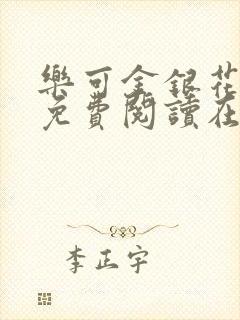 樂可金銀花
免費閱讀在
李正宇